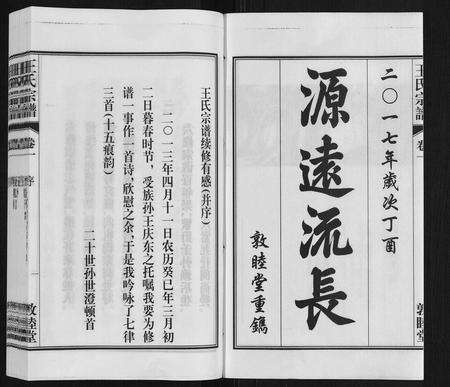 二〇一七年歲次丁酉
源遠流長
敦睦堂重鐫
敦睦堂
王氏宗譜
卷一
序
敦睦堂
王氏宗谱续修有感(并序)
二〇一三年四月十一日农历癸巳年三月初
二日暮春时节，受族孙王庆东之托嘱我要为修
谱一事作一首诗，欣慰之余，于是我吟咏了七律
三首(十五痕韵)
二十世孙世澄顿首